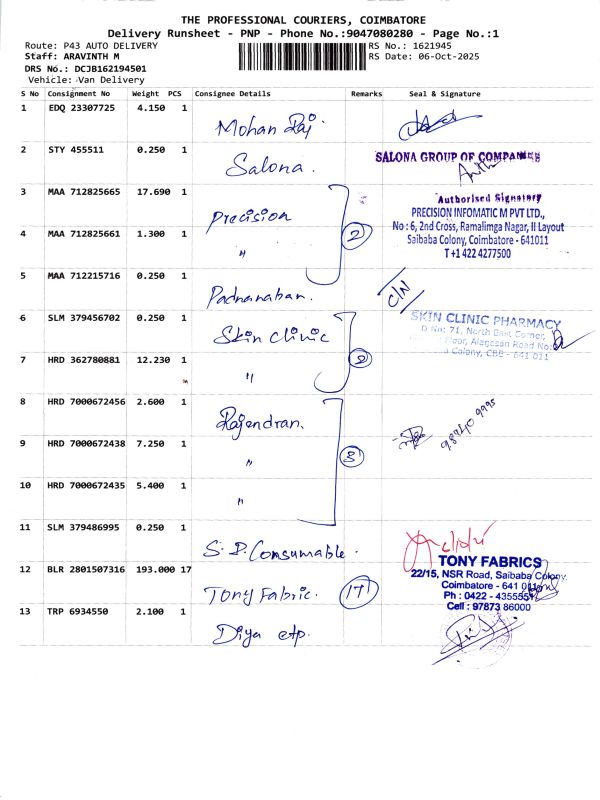 THE PROFESSIONAL COURIERS, COIMBATORE
Delivery Runsheet - PNP - Phone No.:9047080280 - Page No.:1
Route: P43 AUTO DELIVERY
Staff: ARAVINTH M
DRS No.: DCJB162194501
Vehicle: Van Delivery
RS No.: 1621945
RS Date: 06-Oct-2025
S No Consignment No Weight PCS Consignee Details Remarks Seal & Signature
1 EDQ 23307725 4.150 1 Mohan Raj.
2 STY 455511 0.250 1 Salona.
SALONA GROUP OF COMPANIES
Authorised Signatory
3 MAA 712825665 17.690 1 Precision
4 MAA 712825661 1.300 1 " 2
PRECISION INFOMATIC M PVT LTD.,
No : 6, 2nd Cross, Ramalimga Nagar, II Layout
Saibaba Colony, Coimbatore - 641011
T +1 422 4277500
5 MAA 712215716 0.250 1 Padnanaban.
C/N
6 SLM 379456702 0.250 1 Skin clinic
7 HRD 362780881 12.230 1 " 2
SKIN CLINIC PHARMACY
D No: 71, North East Corner,
Floor, Alagesan Road No:
Colony, CBE - 641 011
8 HRD 7000672456 2.600 1 Rajendran.
9 HRD 7000672438 7.250 1 " 3
98940 9995
10 HRD 7000672435 5.400 1 "
11 SLM 379486995 0.250 1 S.D. Consumable.
12 BLR 2801507316 193.000 17 Tony Fabric. 17
TONY FABRICS
22/15, NSR Road, Saibaba Colony,
Coimbatore - 641 011
Ph : 0422 - 4355551
Cell : 97873 86000
13 TRP 6934550 2.100 1 Diya etp.